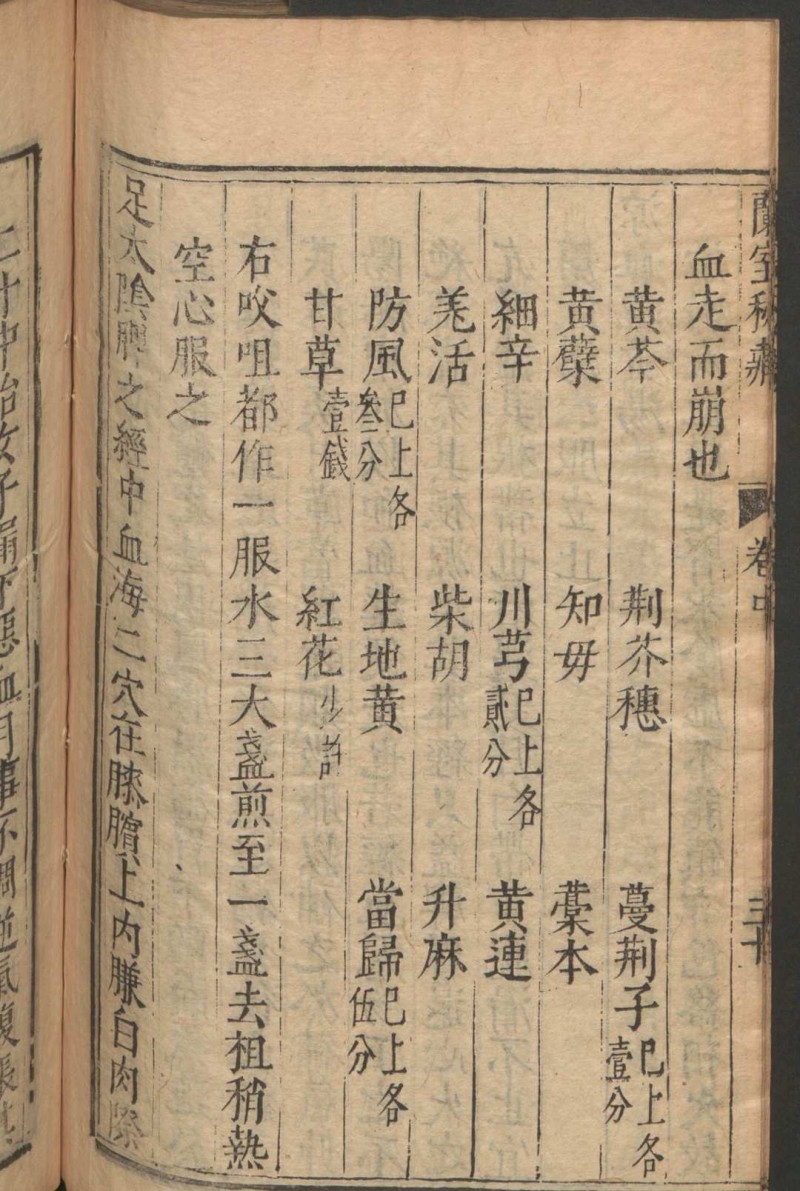 蘭室秘藏 卷中 三十
血走而崩也
黄芩 荆芥穗 蔓荆子巳上各壹分
黄蘗 知毋 藁本
細辛 川芎巳上各貳分 黄連
羌活 柴胡 升麻
防風巳上各叅分 生地黄 當歸巳上各伍分
甘草壹錢 紅花少許
右㕮咀都作一服水三大盞煎至一盞去柤稍熱
空心服之
足太陰脾之經中血海二穴在膝臏上内臁白肉際
二寸中治女子漏下惡血月事不調逆氣腹脹